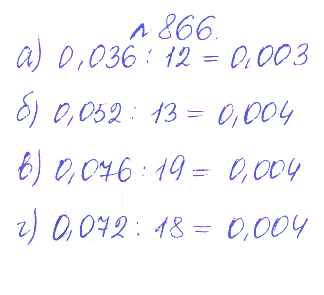 № 866.
а) 0,036 : 12 = 0,003
б) 0,052 : 13 = 0,004
в) 0,076 : 19 = 0,004
г) 0,072 : 18 = 0,004